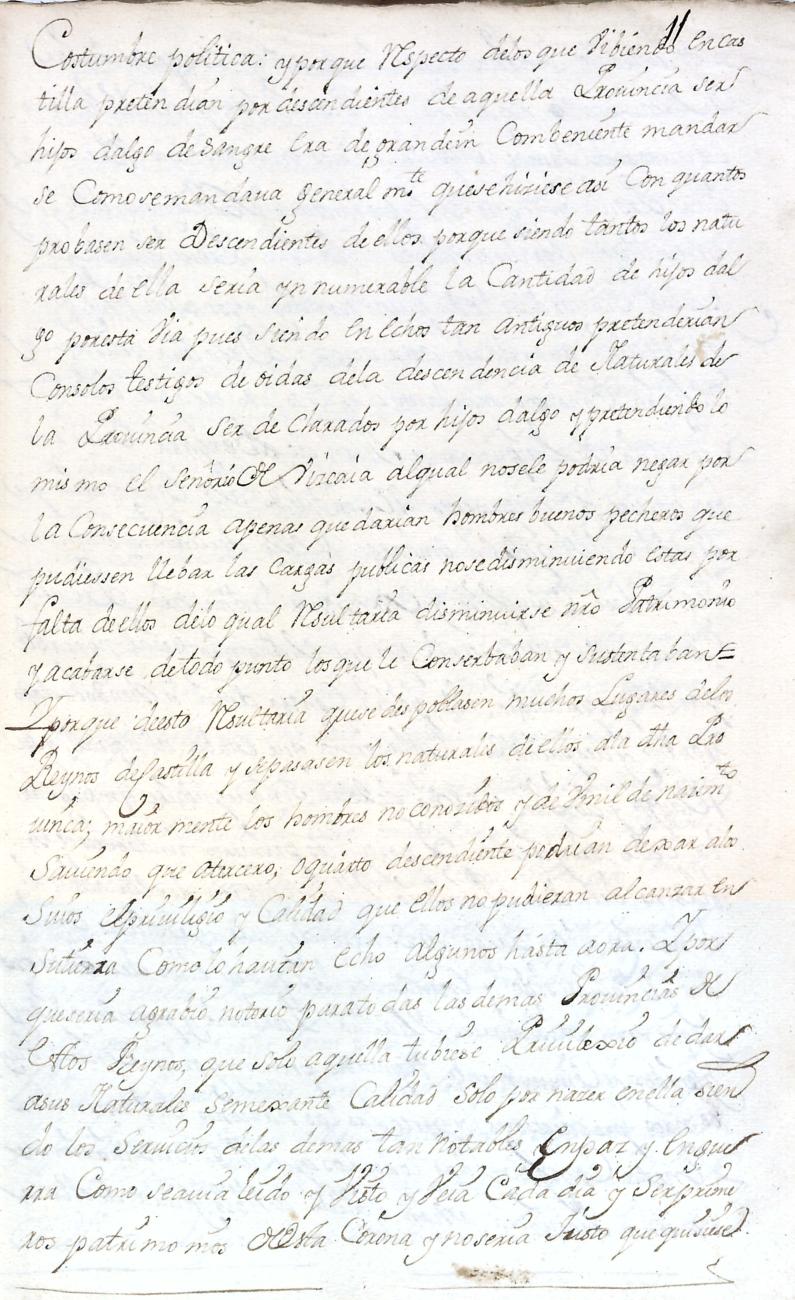 11
Costumbre politica: y porque Respecto delos que Vibiendo en Cas
tilla pretendian por descendientes de aquella Provincia ser
hijos dalgo de Sangre Era de grande in Combeniente mandar
se Como se mandava general mte que se hiziese asi Con quantos
probasen ser Descendientes de ellos porque siendo tantos los natu
rales de ella seria ynnumerable la Cantidad de hijos dal
go por esta Via pues siendo En echos tan antiguos pretenderian
Con solos testigos de oidas dela descendencia de Naturales de
la Provincia ser de Clarados por hijos dalgo y pretendiendo lo
mismo el Señorio de Vizcaia al qual no sele podria negar por
la Consecuencia apenas quedarian hombres buenos pecheros que
pudiessen llebar las Cargas publicas no se disminuiendo estas por
falta de ellos delo qual Resultaria disminuirse nro Patrimonio
y acabarse de todo punto los que le Conserbaban y sustentaban=
Y porque deesto Resultaria que se despoblasen muchos Lugares delos
Reynos de Castilla y se pasasen los naturales de ellos ala dha Pro
vincia; maiormente los hombres no conozidos y de Vmil de nazimto
Saviendo que a tercero, o quarto descendiente podrian dexar alos
Suios el privilegio y Calidad que ellos no pudieran alcanzar en
Su tierra Como lo havian echo algunos hasta aora. Y por
que seria agrabio notorio para todas las demas Provincias de
Estos Reynos, que solo aquella tubiese Privilexio de dar
a sus Naturales Semexante Calidad solo por nazer en ella, sien
do los Servicios delas demas tan notables En paz y En gue
rra Como se avia leido y Visto y Veia Cada dia y Ser prime
ros patrimonios de Esta Corona y no seria Justo que quisiese